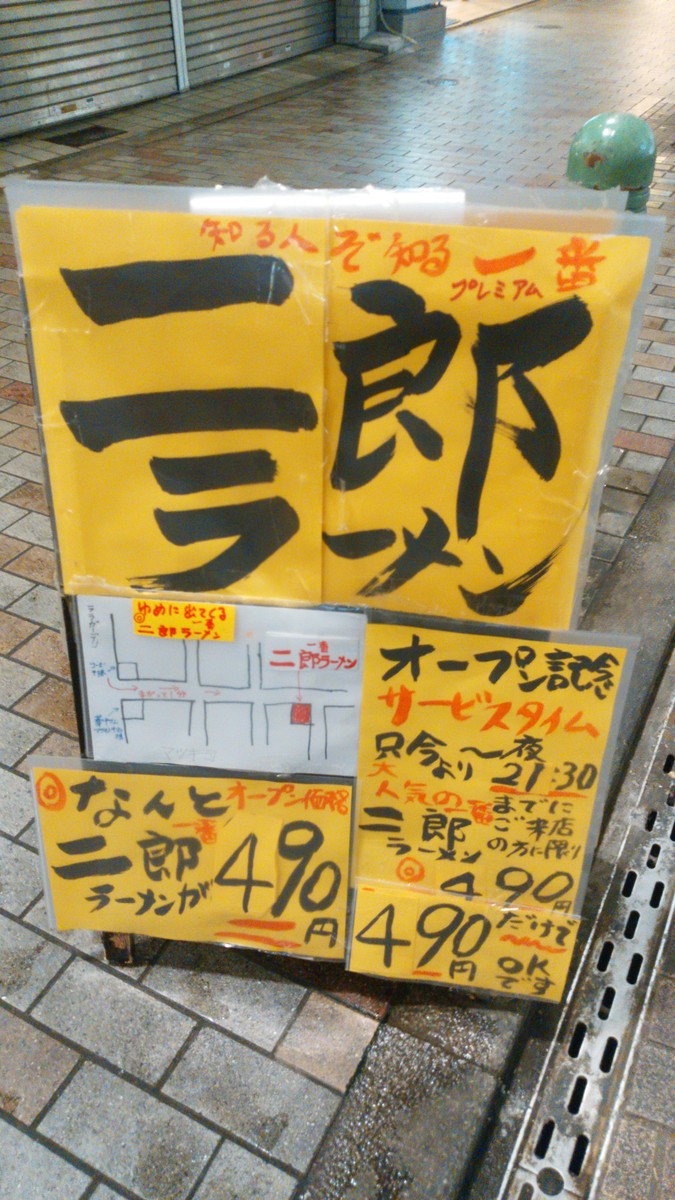 知る人ぞ知る一番
プレミアム
二郎
ラーメン
ゆめに出てくる
◎一番
二郎ラーメン
一番
二郎ラーメン
オープン記念
サービスタイム
只今より〜夜
21:30
大人気の一番
までに
ご来店
の方に限り
二郎
ラーメン
◎490円
◎なんとオープン価格
一番
二郎
ラーメンが
490円
490円
だけで
OK
です